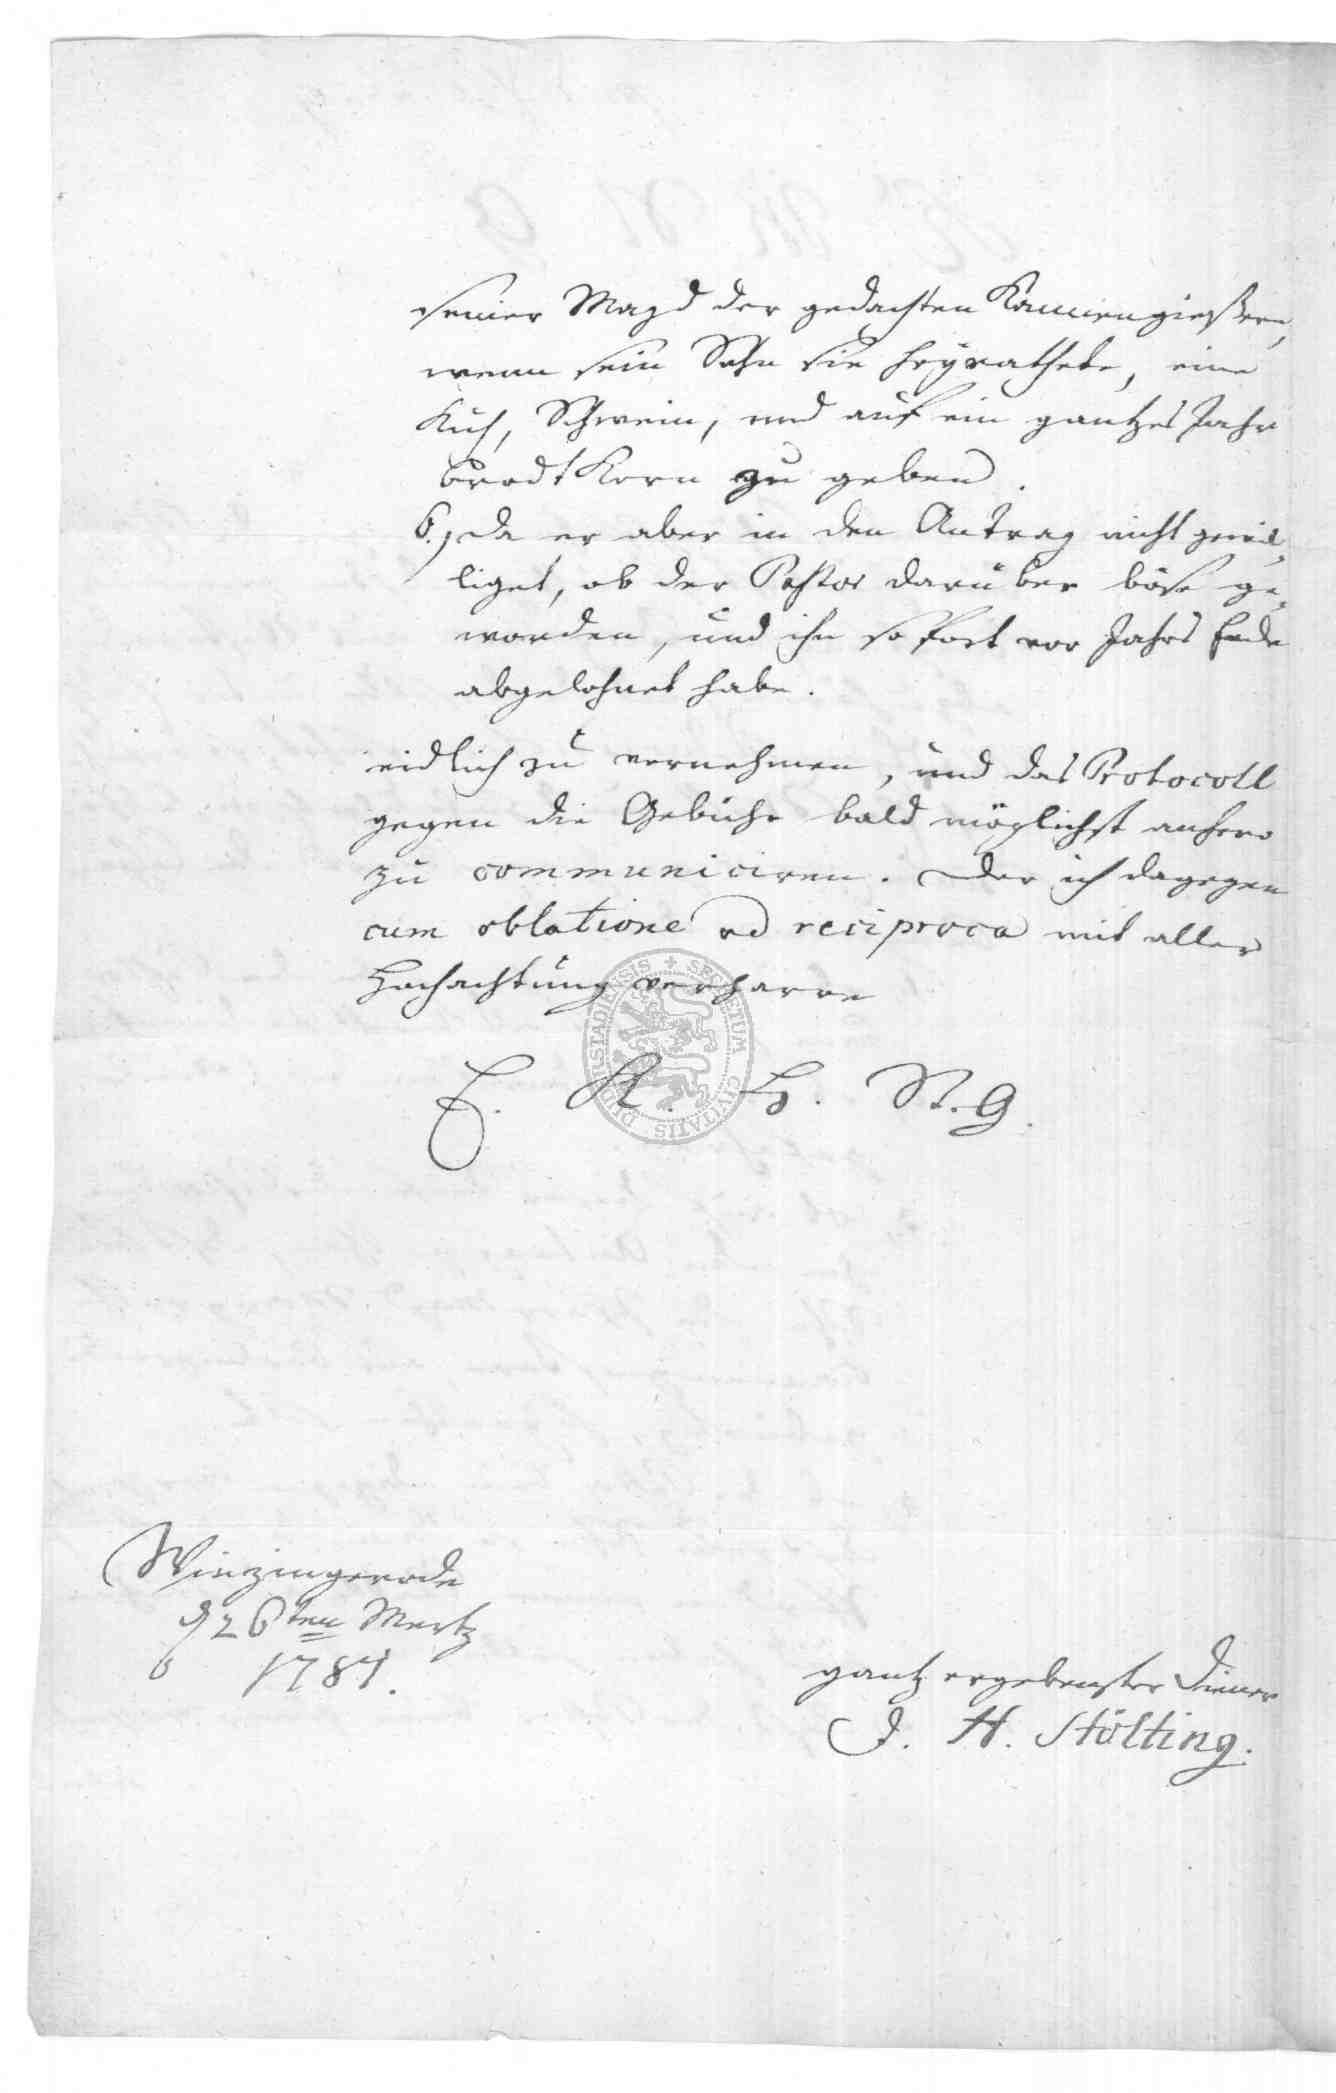 seiner Magd der gedachten Kannengießern,
wenn sein Sohn sie heyrathete, eine
Kuh, Schwein, und auf ein gantzes Jahr
brodt Korn zu geben.
6., Da er aber in den Antrag nicht gewil,
liget, ob der Pastor darüber böse ge,
worden, und ihn sofort vor Jahrs Ende
abgelohnet habe.
eidlich zu vernehmen, und das Protocoll
gegen die Gebühr bald möglichst anhero
zu communiciren. Der ich dagegen
cum oblatione ad reciproca mit aller
Hochachtung verharre
SECRETUM CIVITATIS DUDERSTADIENSIS
E. H. St. G.
Wintzingerode
d 26ten Mertz
1787.
gantz ergebenster Diener
J. H. Stölting.